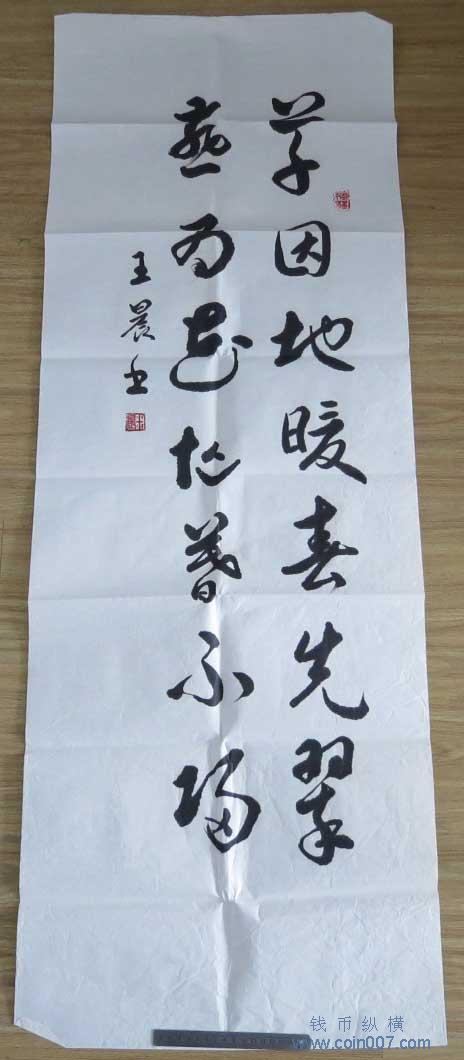 草因地暖春先翠
燕为花忙暮不归
王晨书
钱币纵横
www.coin007.com